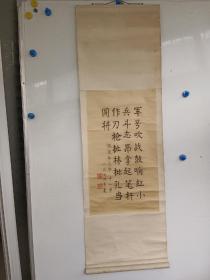 军号吹战鼓响红小
兵斗志昂拿起笔杆
作刀枪批林批孔当
闯将